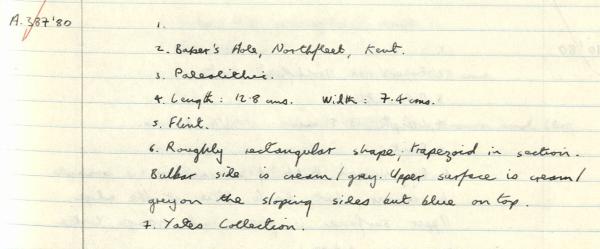 A.387'80
1.
2. Baker's Hole, Northfleet, Kent.
3. Paleolithic.
4. Length: 12.8 cms. Width: 7.4 cms.
5. Flint.
6. Roughly rectangular shape, trapezoid in section.
Bulbar side is cream/gray. Upper surface is cream/
grey on the sloping sides but blue on top.
7. Yates Collection.